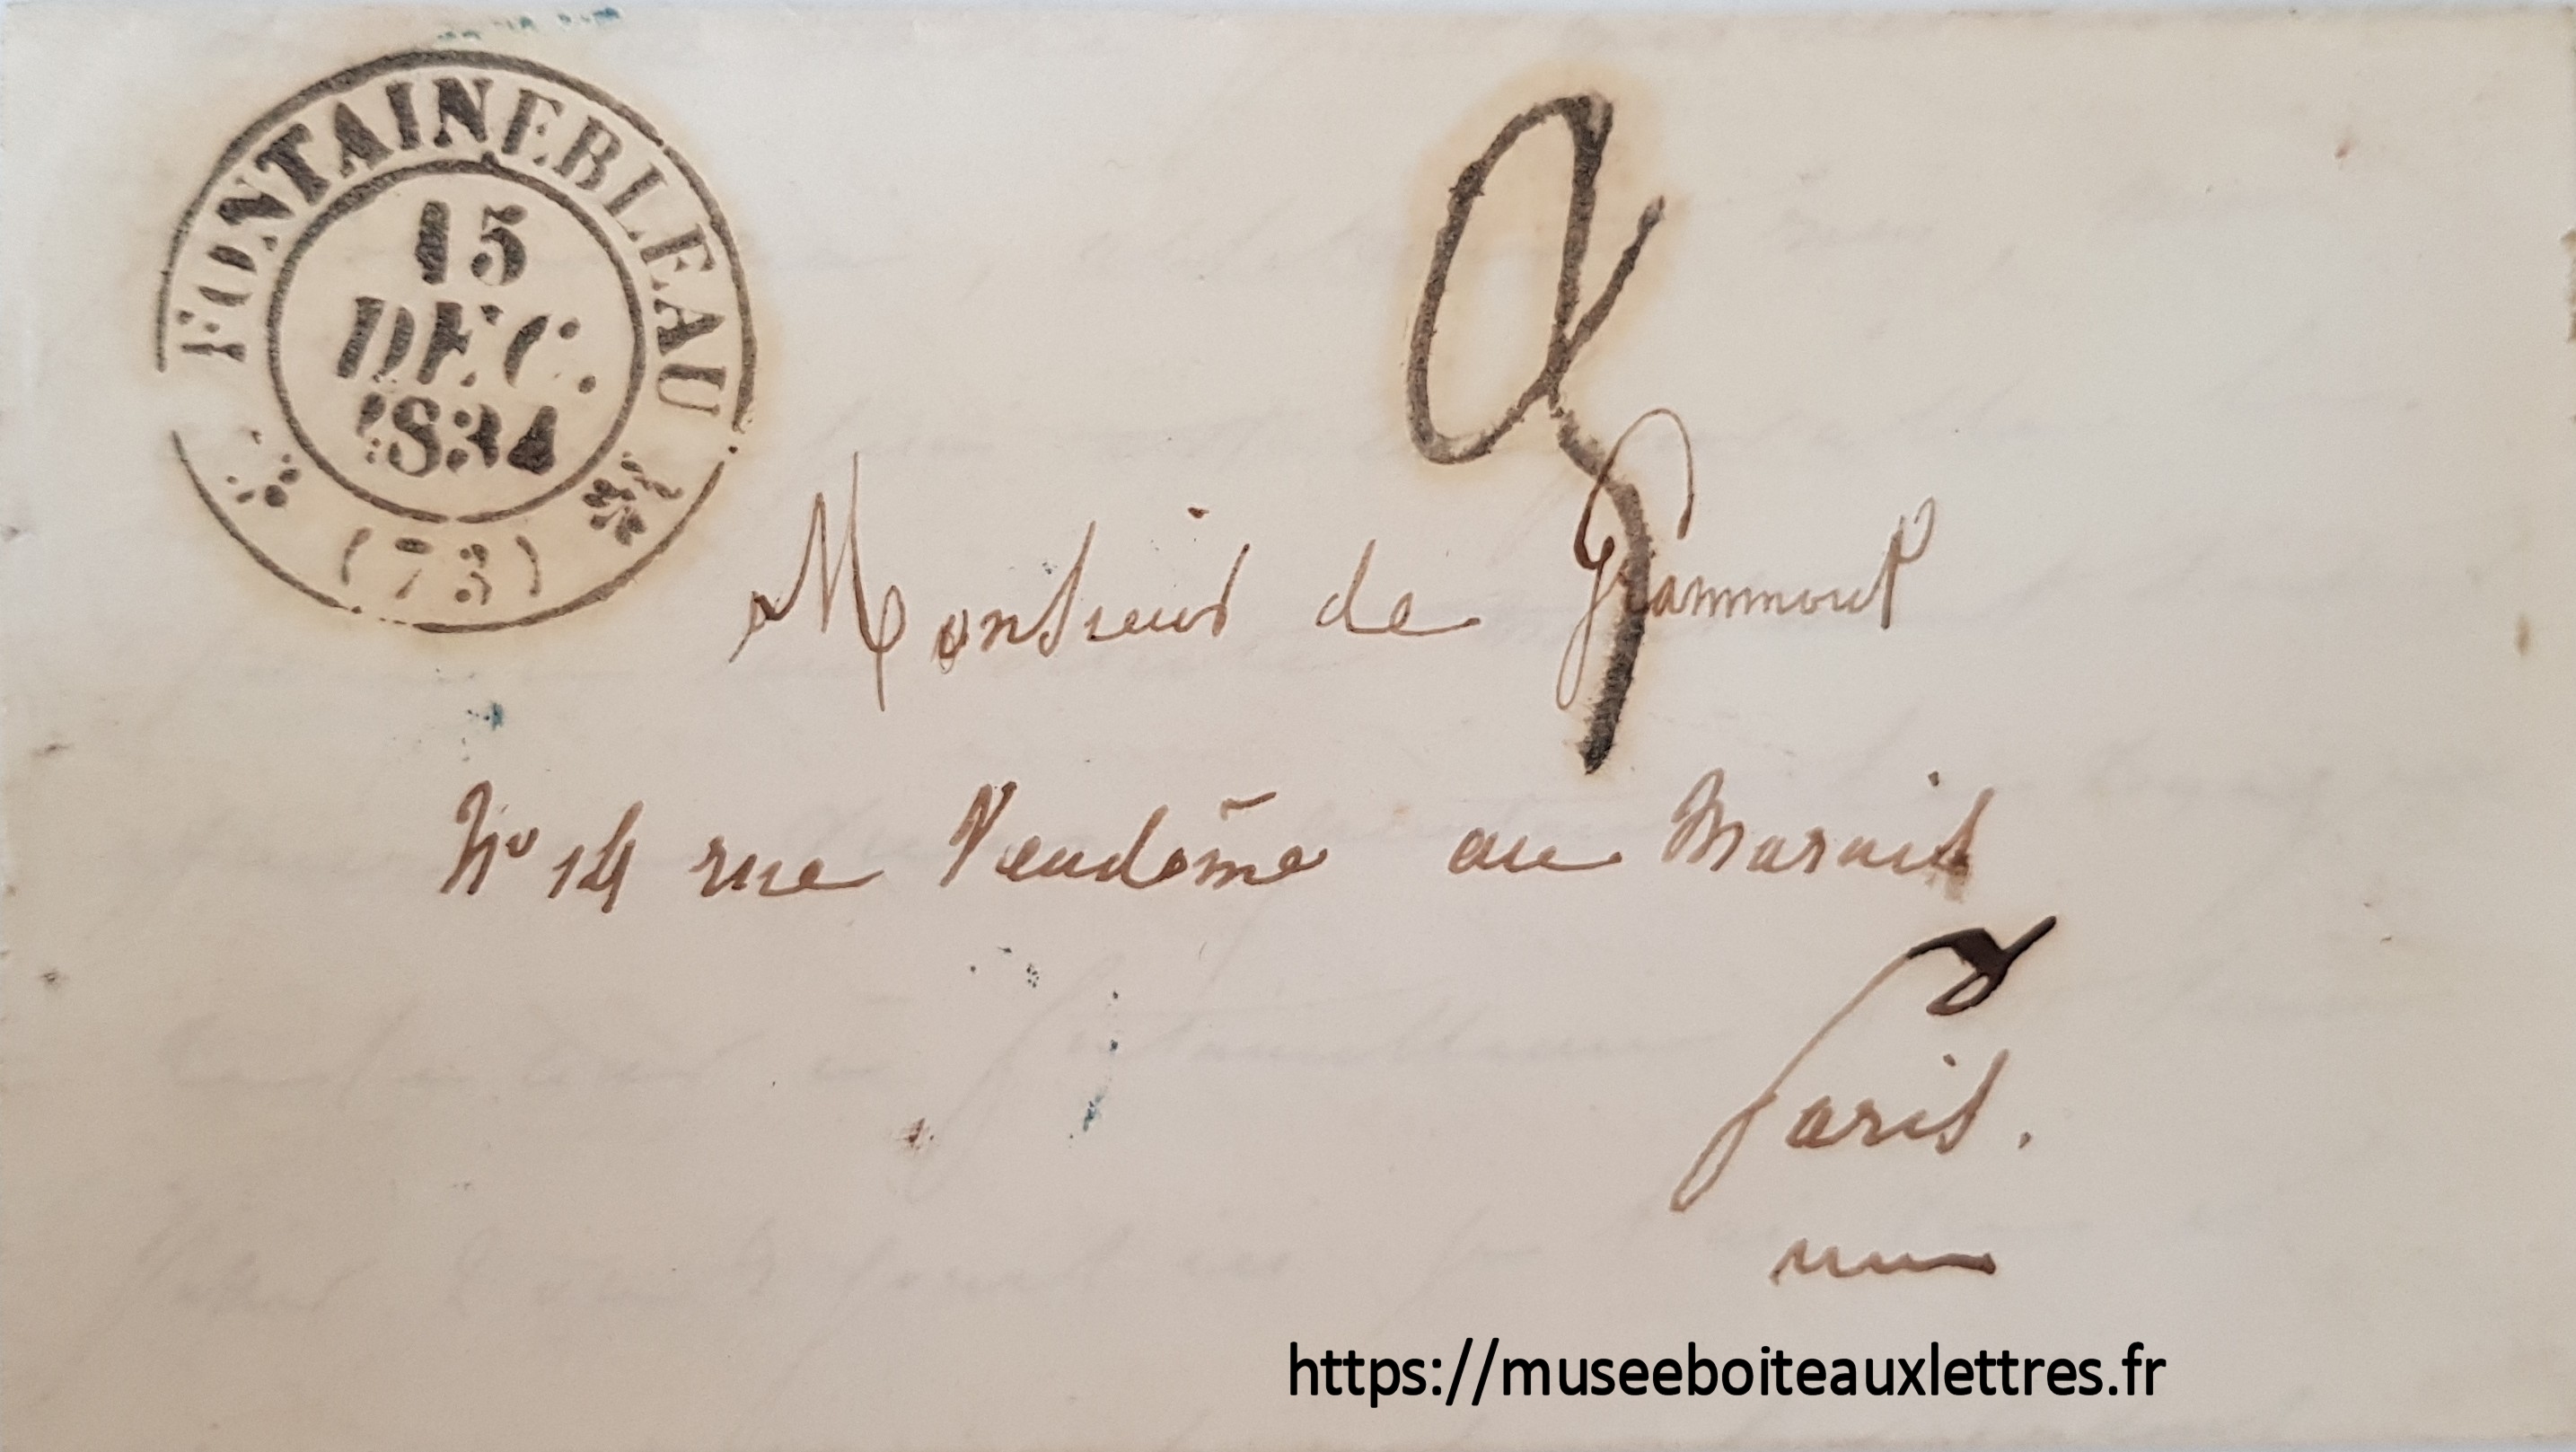 FONTAINEBLEAU
15
DEC.
1834
(73)
Monsieur de Grammont
No 14 rue Vendôme au Marais
Paris.
https://museeboiteauxlettres.fr